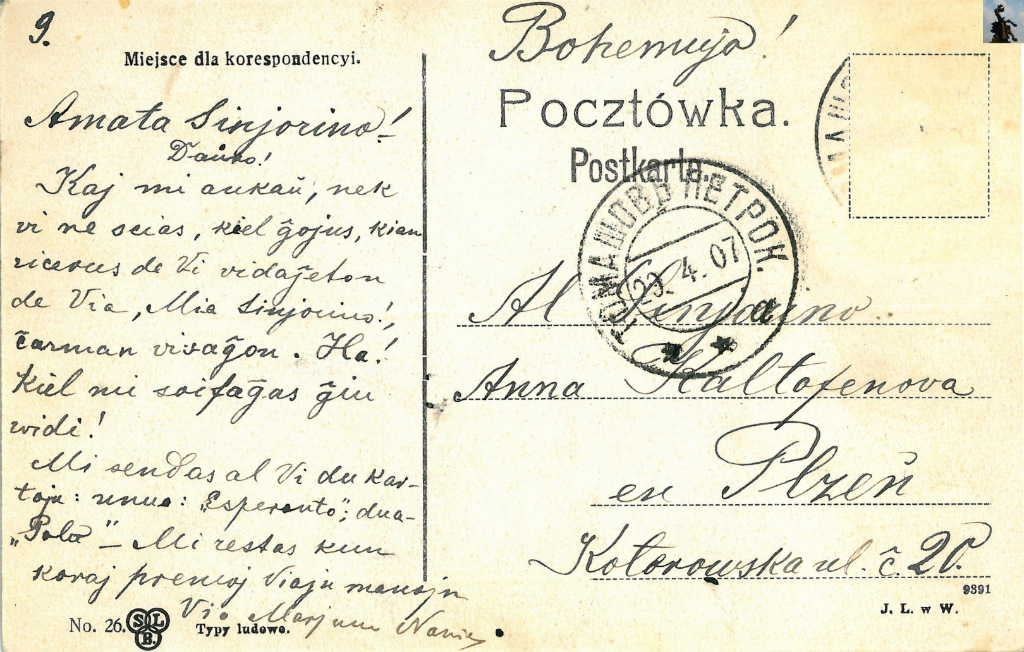 9.
Miejsce dla korespondencyi.
Amata Sinjorino!
Kaj mi ankaŭ, nek
vi ne scias, kiel ĝojus, kian
ricevus de Vi vidaĝeton
de Via, Mia Sinjorino!,
ĉarman visaĝon. Ha!
Kiel mi soifaĝas ĝin
vidi!
Mi sendas al Vi du kar-
tojn: unua: „Esperanto”; dua-
„Pola” – Mi restas kun
koraj premoj Viajn manojn
Via
No. 26.
S L B.
Typy ludowe.
Bohemujo!
Pocztówka.
Postkarte.
ТОМАШОВЪ ПЕТРОК.
20. 4. 07
а
Al Sinjorino
Anna Kaltofenova
en Plzeň
Kotorowska ul. č. 20.
9391
J. L. w W.